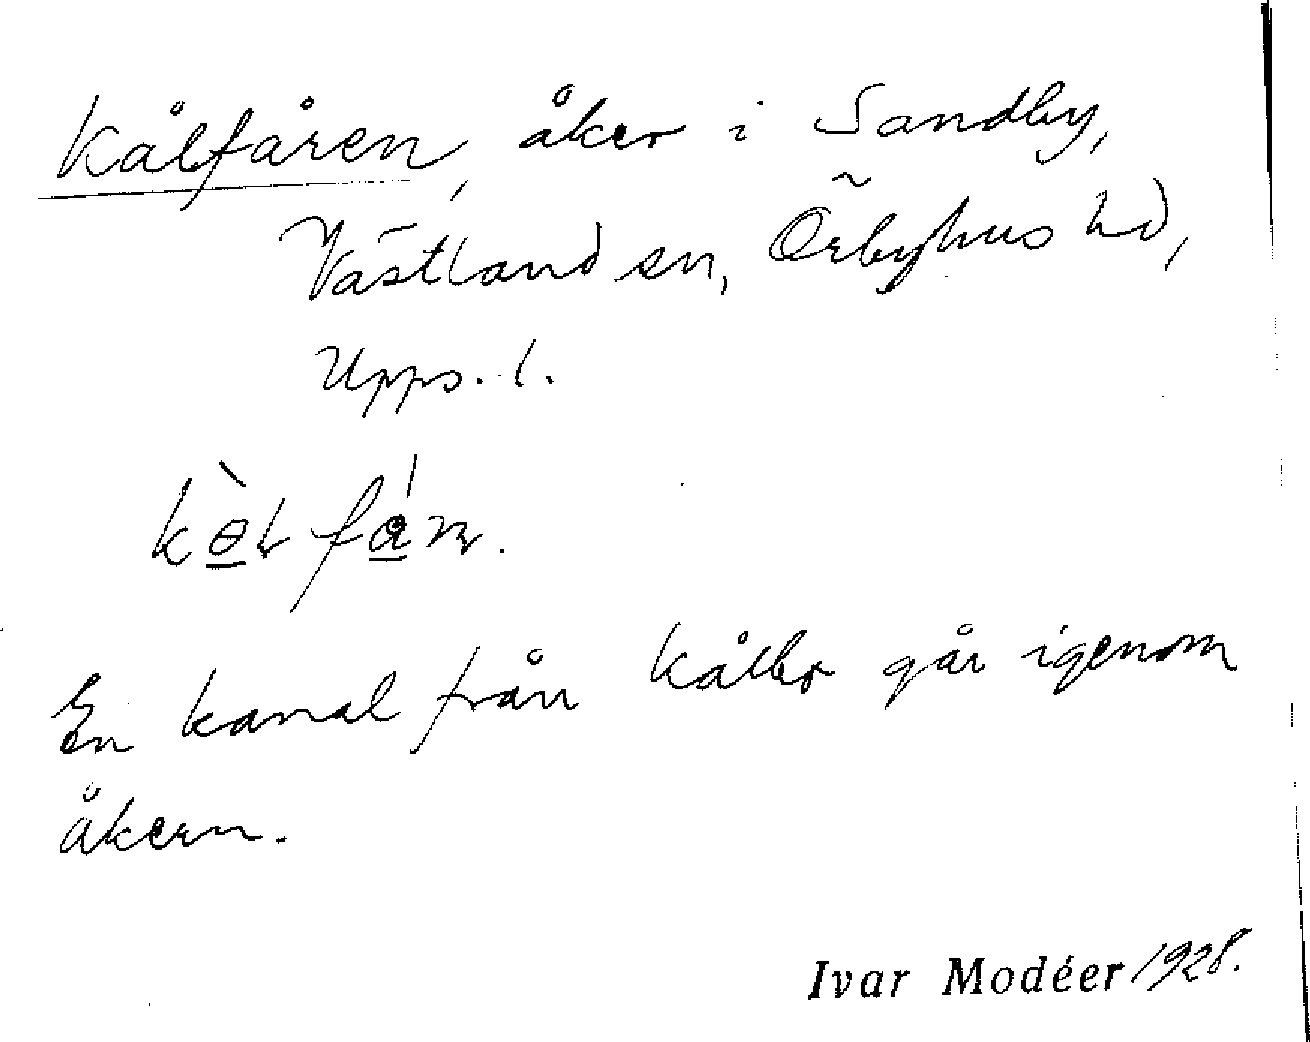 Kålfåren, åker i Sandby,
Västland sn, Örbyhus hd,
Upps. l.
En kanal från Kålbo går igenom
åkern.
Ivar Modéer 1928.